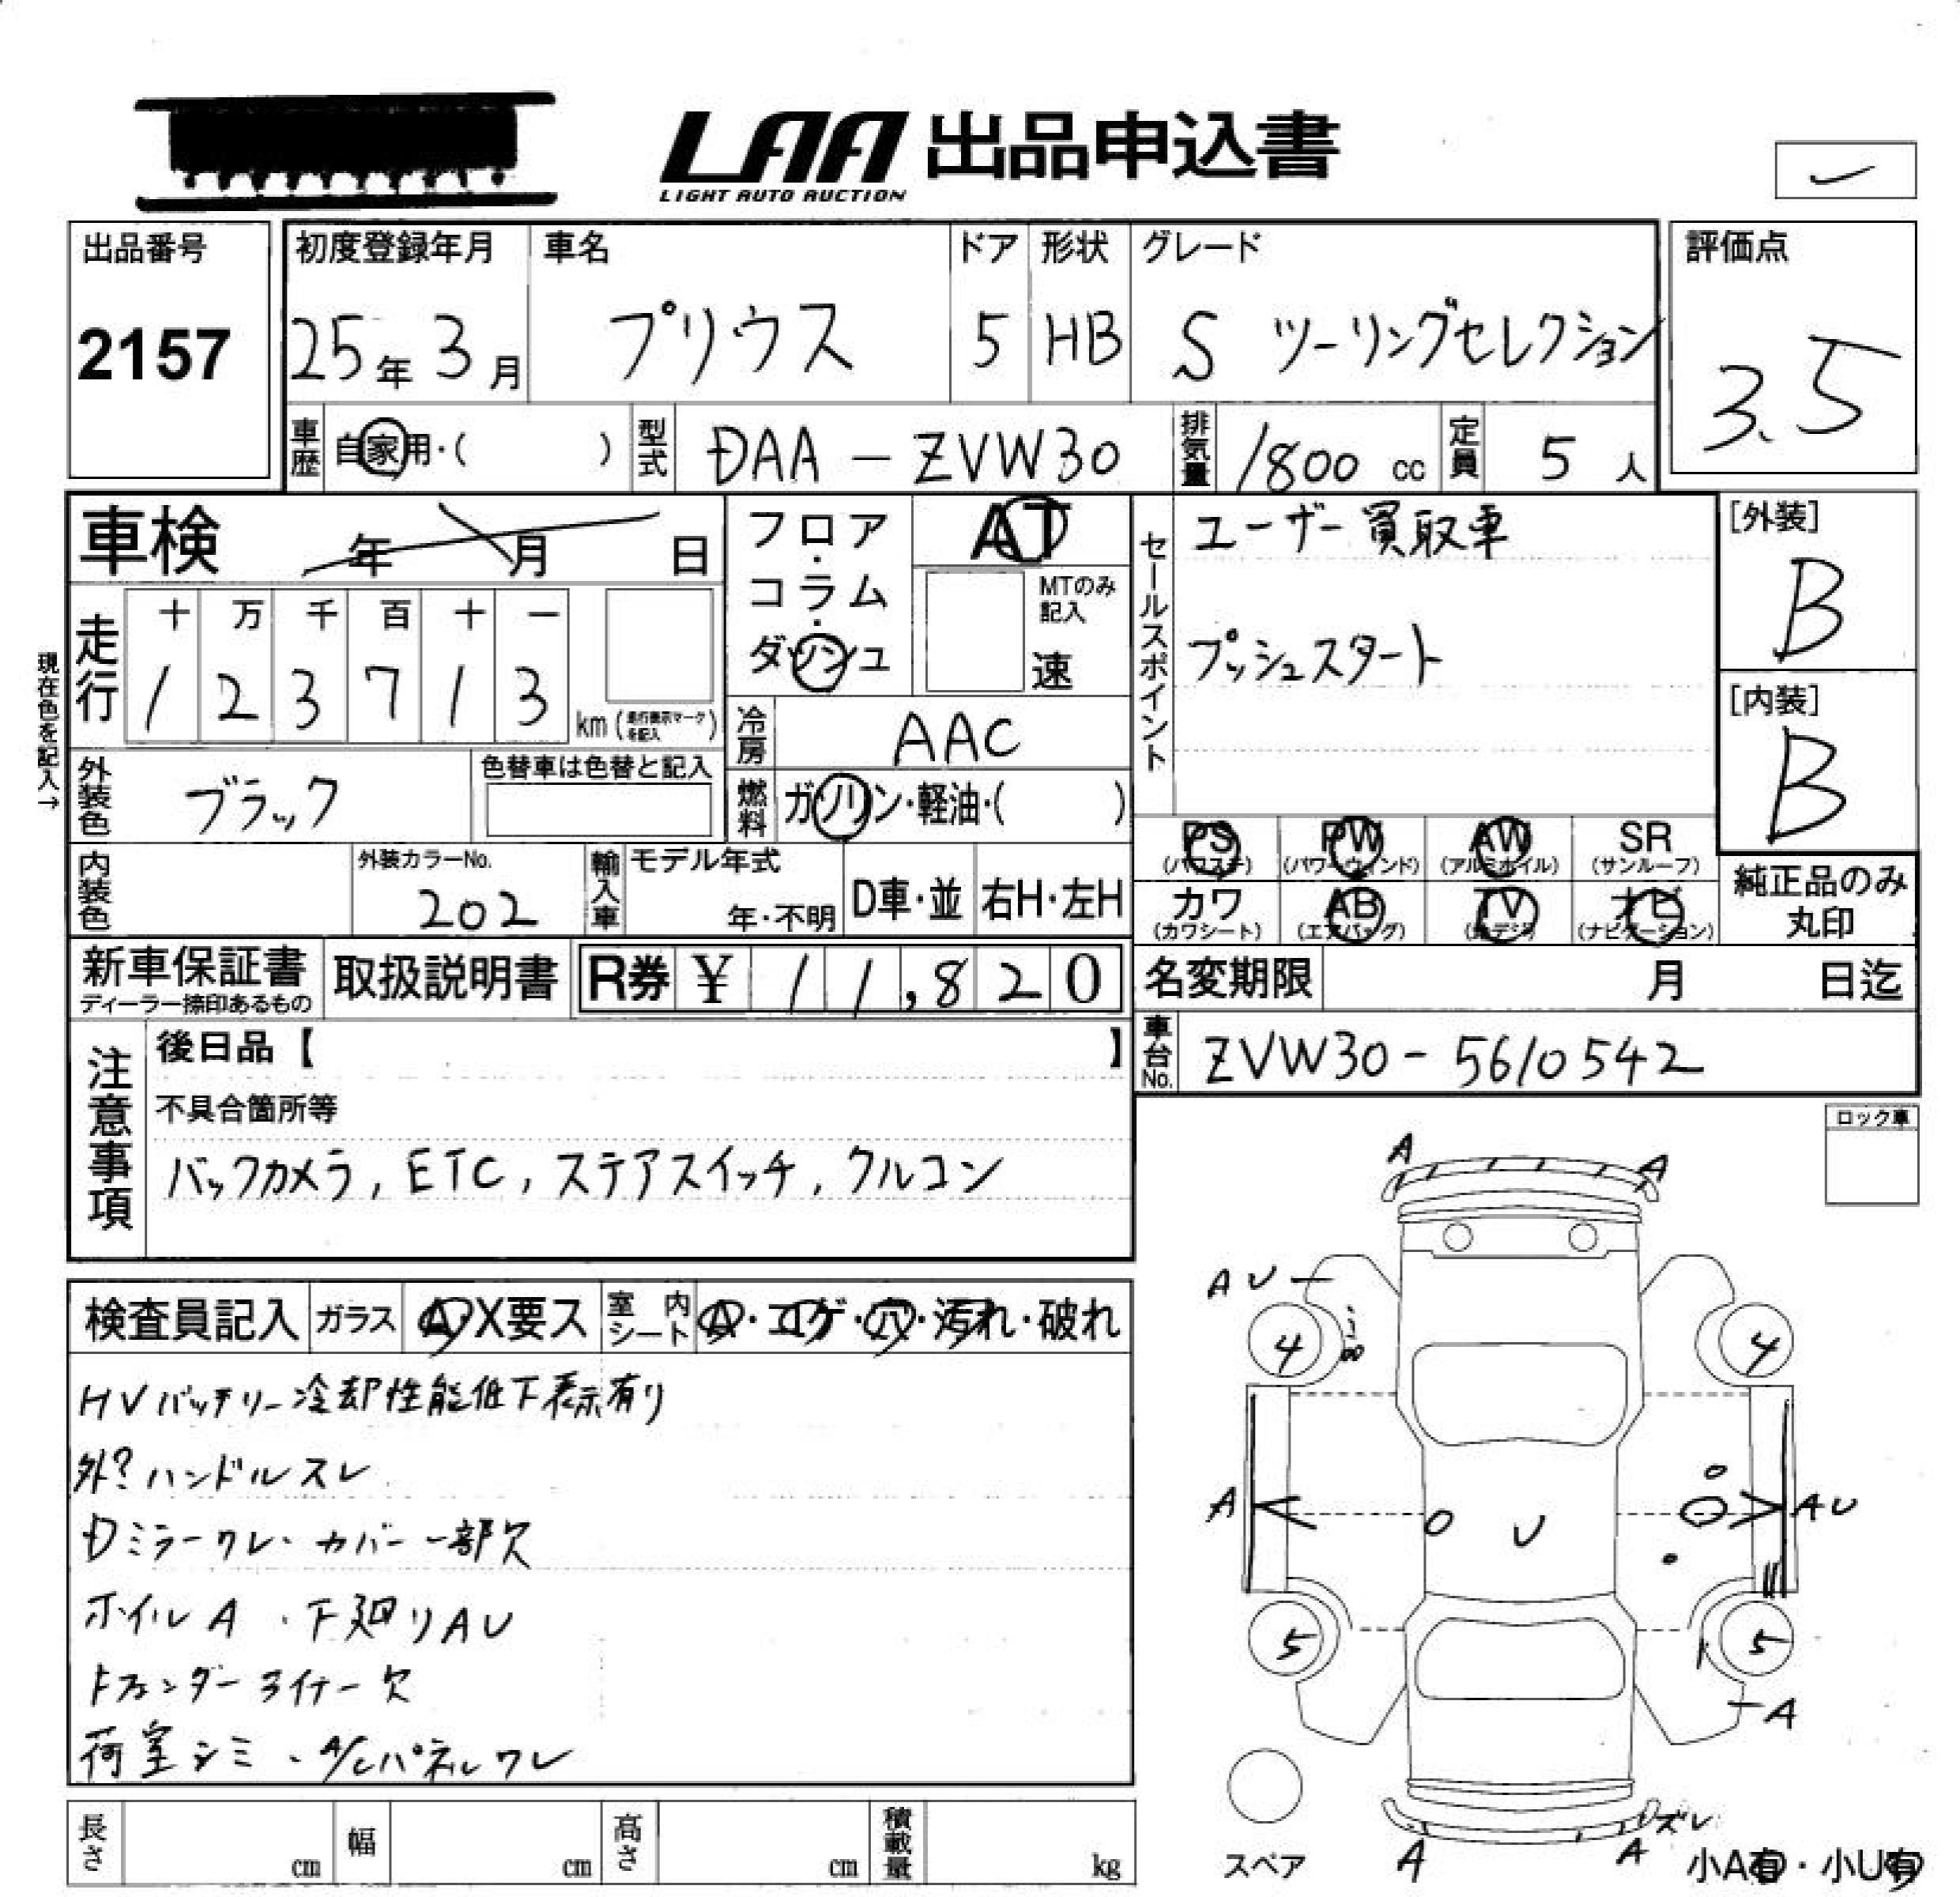 LAA 出品申込書
LIGHT AUTO AUCTION
出品番号
2157
初度登録年月
25年 3月
車名
プリウス
ドア
5
形状
HB
グレード
S ツーリングセレクション
評価点
3.5
車歴
自家用・( )
型式
DAA - ZVW30
排気量
1800 cc
定員
5 人
車検 年 月 日
フロア・コラム・ダッシュ
AT
MTのみ記入
速
セールスポイント
ユーザー買取車
プッシュスタート
[外装]
B
[内装]
B
現在色を記入→
走行
十 万 千 百 十 一
1 2 3 7 1 3 km (走行表示マークを記入)
冷房
AAC
外装色
ブラック
色替車は色替と記入
燃料
ガソリン・軽油・( )
内装色
外装カラーNo.
202
輸入車
モデル年式
年・不明
D車・並
右H・左H
PS (パワステ)
PW (パワーウィンド)
AW (アルミホイル)
SR (サンルーフ)
カワ (カワシート)
AB (エアバッグ)
TV (地デジ)
ナビ (ナビゲーション)
純正品のみ丸印
新車保証書
ディーラー捺印あるもの
取扱説明書
R券 ¥ 11,820
名変期限 月 日迄
車台No.
ZVW30-5610542
注意事項
後日品【 】
不具合箇所等
バックカメラ, ETC, ステアスイッチ, クルコン
ロック車
検査員記入
ガラス
A・X要ス
室内シート
A・コゲ・穴・汚れ・破れ
HVバッテリー冷却性能低下表示有り
外?ハンドルスレ
Dミラーワレ・カバー一部欠
ホイルA・下廻りAU
トフェンダーライナー欠
荷室シミ・A/Cパネルワレ
A
A
AU
4
4
A
U
AU
5
5
A
ズレ
A
A
スペア
小A有・小U有
長さ cm
幅 cm
高さ cm
積載量 kg